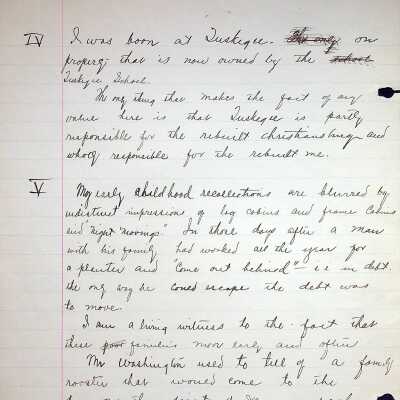 IV I was born at Tuskegee. on
property that is now owned by the
Tuskegee School.
The only thing that makes the fact of any
value here is that Tuskegee is partly
responsible for the rebuilt and
wholly responsible for the rebuilt me.
V My early childhood recollections are blurred by
indistinct impressions of log cabins and frame cabins
and "night movings". In those days after a man
with his family had worked all the year for
a planter and "come out behind" – i.e in debt.
the only way he could escape the debt was
to move.
I am a living witness to the fact that
these families move early and often
Mr Washington used to tell of a family
rooster that would come to the